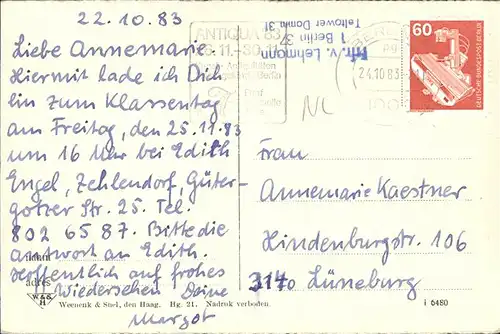 22.10.83
Liebe Annemarie
Hiermit lade ich Dich
ein zum Klassentag
am Freitag, den 25.11.83
um 16 Uhr bei Edith
Engel, Zehlendorf, Güter-
gotzer Str. 25. Tel.
802 65 87. Bitte die
antwort an Edith.
Hoffentlich auf frohes
Wiedersehen Deine
Margot
adres
W.&S.
H
Weenenk & Snel, den Haag. Hg. 21. Nadruk verboden.
ANTIQUA 83
Berlin
v. Lehmann
1 Berlin 37
Teltower Damm
24.10.83
60
DEUTSCHE BUNDESPOST BERLIN
Frau
Annemarie Kaestner
Hindenburgstr. 106
3140 Lüneburg
i 6480